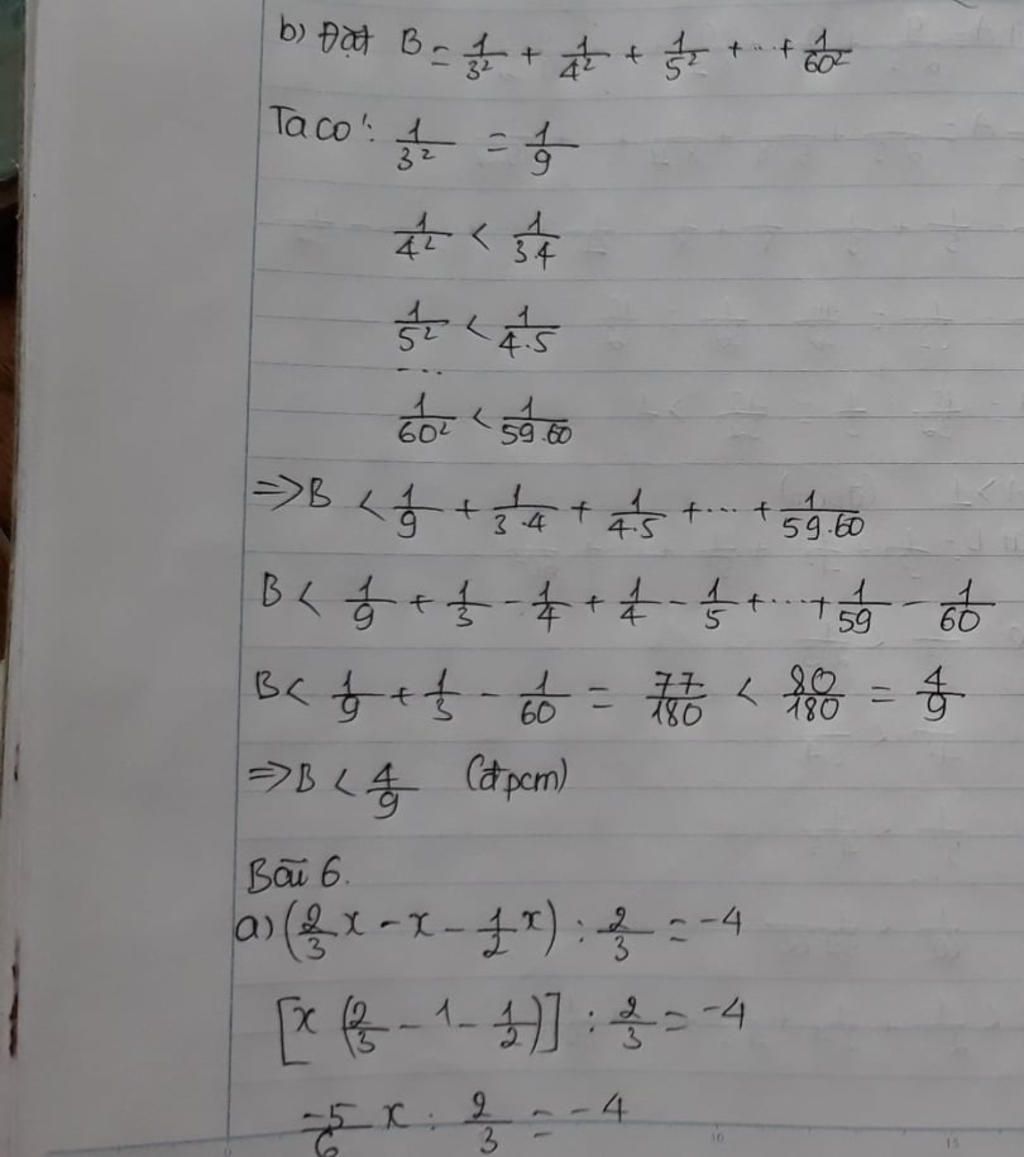 b) Đặt B = 1/3² + 1/4² + 1/5² + ... + 1/60²
Ta có: 1/3² = 1/9
1/4² < 1/3.4
1/5² < 1/4.5
...
1/60² < 1/59.60
=> B < 1/9 + 1/3.4 + 1/4.5 + ... + 1/59.60
B < 1/9 + 1/3 - 1/4 + 1/4 - 1/5 + ... + 1/59 - 1/60
B < 1/9 + 1/3 - 1/60 = 77/180 < 80/180 = 4/9
=> B < 4/9 (đpcm)
Bài 6.
a) (2/3 x - x - 1/2 x) : 2/3 = -4
[x (2/3 - 1 - 1/2)] : 2/3 = -4
-5/6 x : 2/3 = -4
10 15